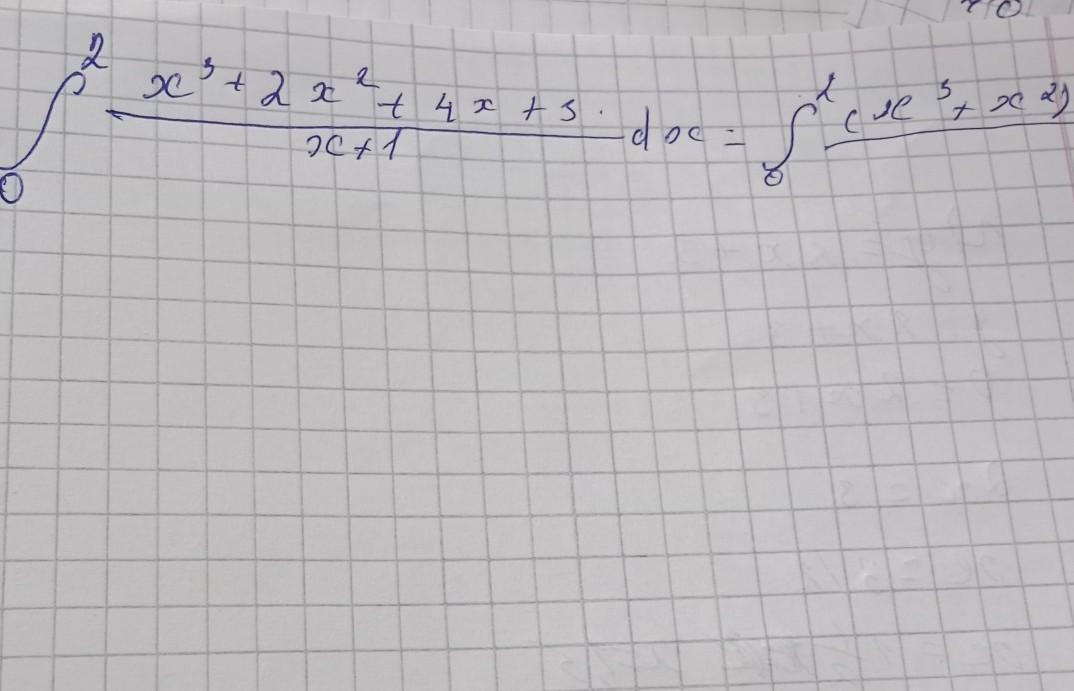 ∫₀² (x³ + 2x² + 4x + 3)/(x + 1) dx = ∫₀² (x³ + x²)